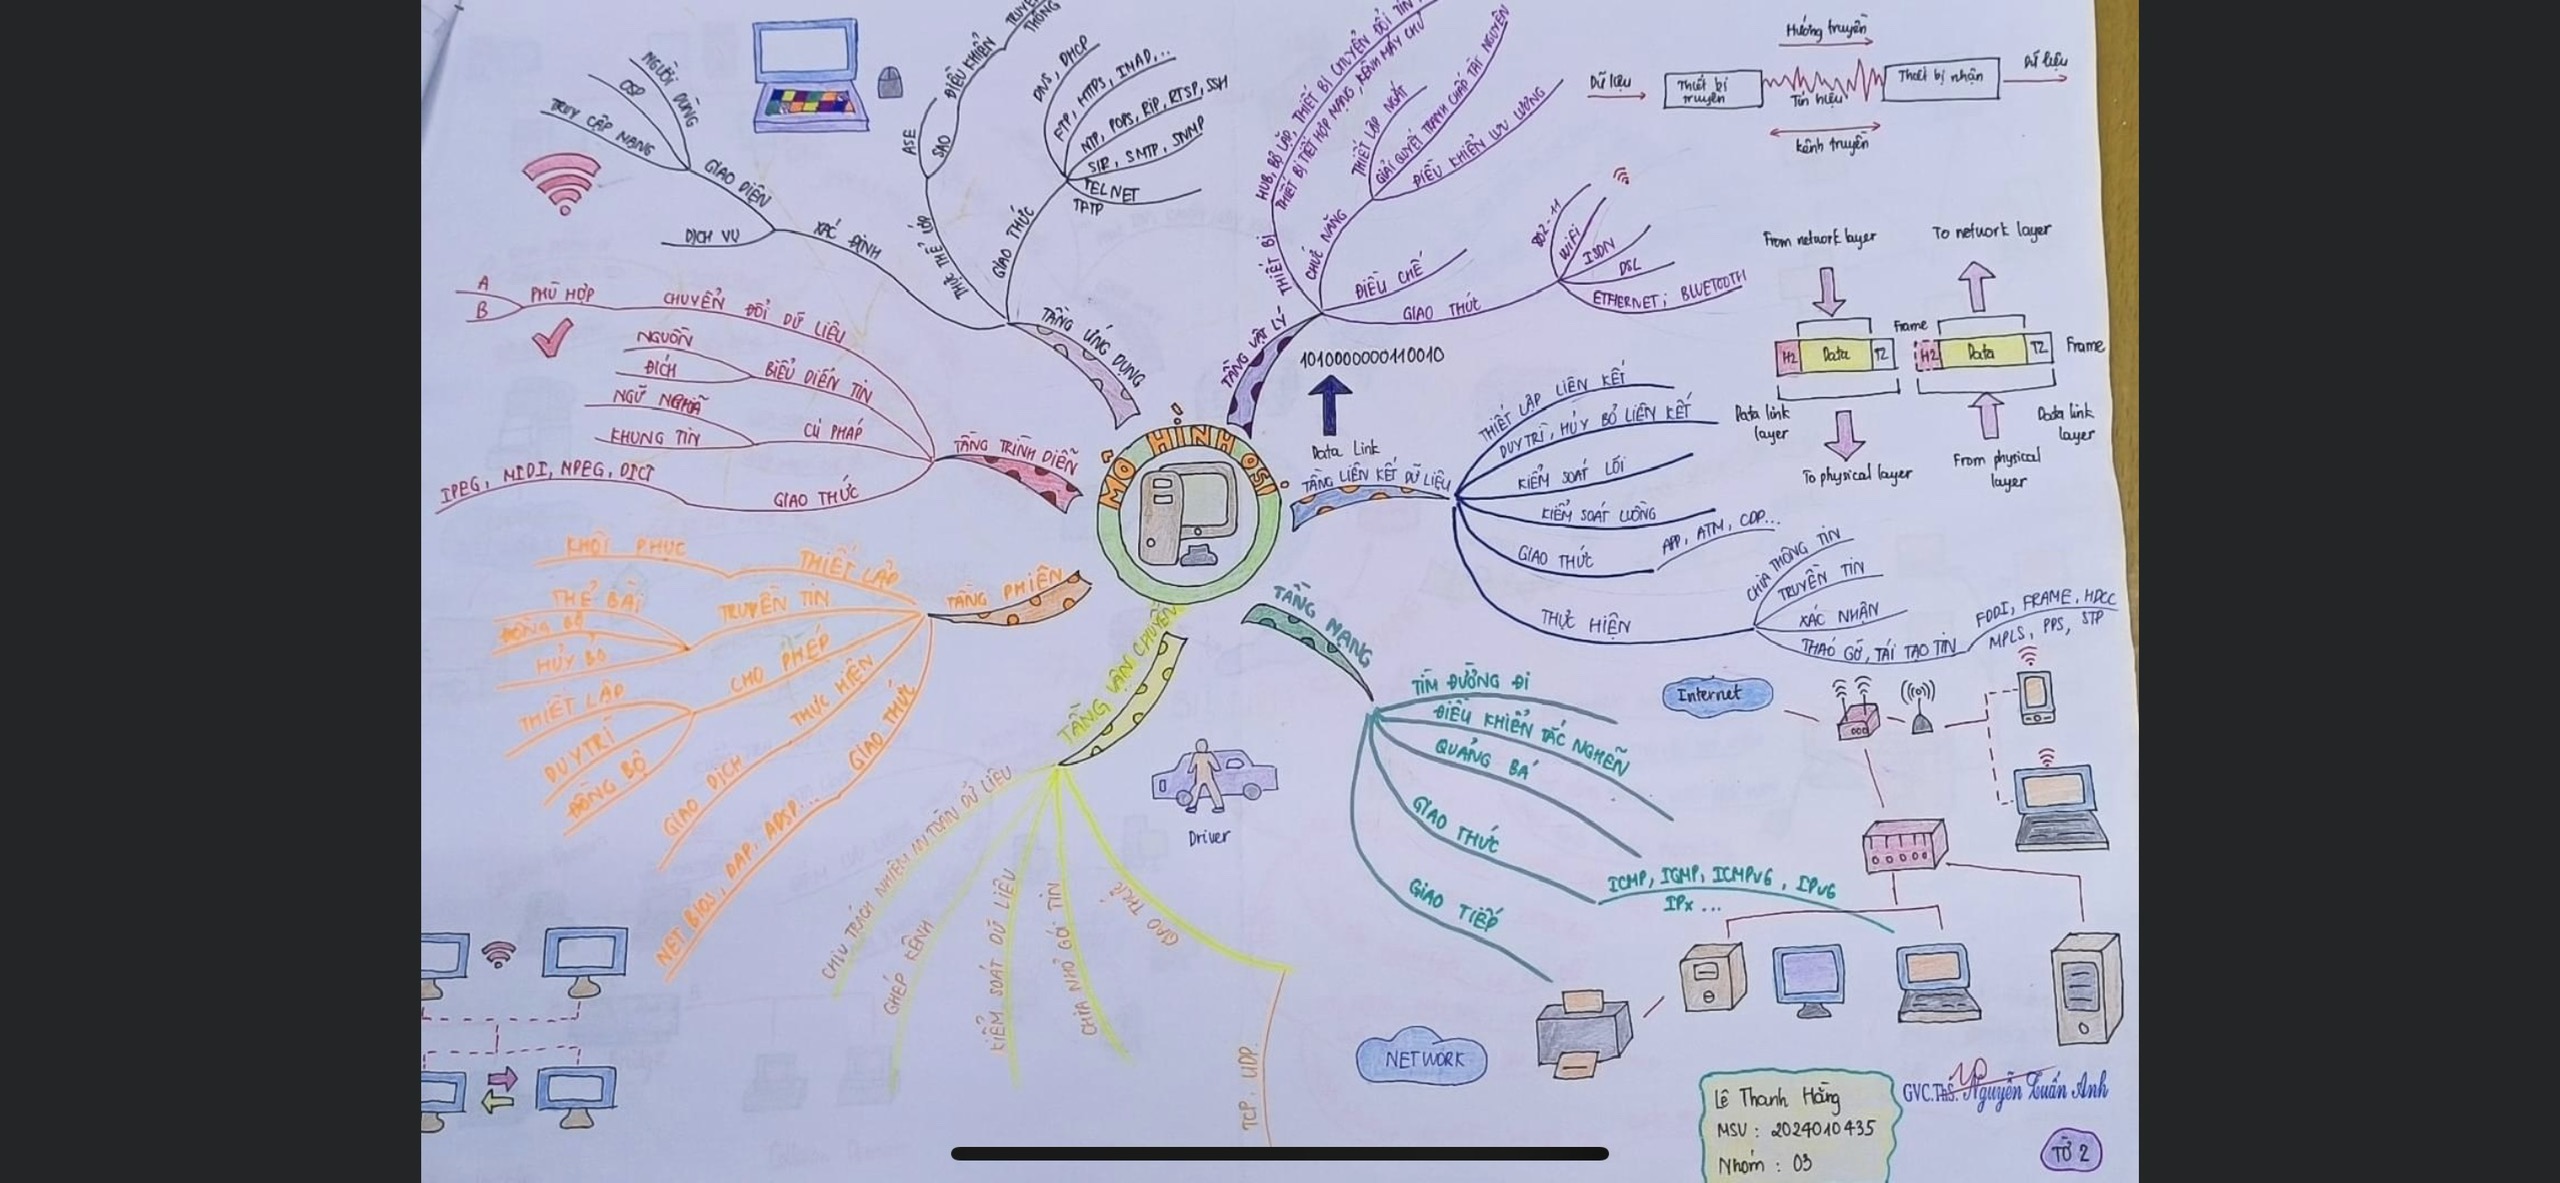 MÔ HÌNH OSI
TẦNG ỨNG DỤNG
XÁC ĐỊNH
GIAO DIỆN
NGƯỜI DÙNG
OSP
TRUY CẬP MẠNG
DỊCH VỤ
THỰC THỂ LỚP
ASE
SAO
ĐIỀU KHIỂN
TRUYỀN
THÔNG
GIAO THỨC
DNS, DHCP
FTP, HTTPS, IMAD,...
NTP, POPS, RIP, RTSP, SSH
SIR, SMTP, SNMP
TELNET
TFTP
TẦNG VẬT LÝ
THIẾT BỊ
HUB, BỘ LẶP, THIẾT BỊ CHUYỂN ĐỔI TÍN
THIẾT BỊ TIẾT HỢP MẠNG, KÊNH MÁY CHỦ
CHỨC NĂNG
THIẾT LẬP NGẮT
GIẢI QUYẾT TRANH CHẤP TÀI NGUYÊN
ĐIỀU KHIỂN LƯU LƯỢNG
ĐIỀU CHẾ
GIAO THỨC
802-11
WiFi
ISDN
DSL
ETHERNET; BLUETOOTH
Hướng truyền
Dữ liệu
Thiết bị
truyền
Tín hiệu
Thiết bị nhận
Dữ liệu
kênh truyền
From network layer
To network layer
Frame
H2
Data
T2
H2
Data
T2
Frame
Data link
layer
Data link
layer
To physical layer
From physical
layer
1010000000110010
Data Link
TẦNG LIÊN KẾT DỮ LIỆU
THIẾT LẬP LIÊN KẾT
DUY TRÌ, HỦY BỎ LIÊN KẾT
KIỂM SOÁT LỖI
KIỂM SOÁT LUỒNG
GIAO THỨC
APP, ATM, CDP...
THỰC HIỆN
CHIA THÔNG TIN
TRUYỀN TIN
XÁC NHẬN
THÁO GỠ, TÁI TẠO TIN
FDDI, FRAME, HDCC
MPLS, PPS, STP
TẦNG TRÌNH DIỄN
CHUYỂN ĐỔI DỮ LIỆU
PHÙ HỢP
A
B
BIỂU DIỄN TIN
NGUỒN
ĐÍCH
CÚ PHÁP
NGỮ NGHĨA
KHUNG TIN
GIAO THỨC
IPEG, MIDI, MPEG, DICT
TẦNG PHIÊN
THIẾT LẬP
KHÔI PHỤC
TRUYỀN TIN
THẺ BÀI
ĐỒNG BỘ
HỦY BỎ
CHO PHÉP
THIẾT LẬP
DUY TRÌ
ĐỒNG BỘ
THỰC HIỆN
GIAO DỊCH
GIAO THỨC
NET BIOS, DAP, ADSP...
TẦNG VẬN CHUYỂN
CHỊU TRÁCH NHIỆM AN TOÀN DỮ LIỆU
GHÉP KÊNH
KIỂM SOÁT DỮ LIỆU
CHIA NHỎ GÓI TIN
GIAO THỨC
TCP, UDP.
Driver
TẦNG MẠNG
TÌM ĐƯỜNG ĐI
ĐIỀU KHIỂN TẮC NGHẼN
QUẢNG BÁ
GIAO THỨC
ICMP, IGMP, ICMPV6, IPV6
IPx ...
GIAO TIẾP
Internet
NETWORK
Lê Thanh Hằng
MSV : 2024010435
Nhóm : 03
GVC.ThS. Nguyễn Tuấn Anh
TỔ 2